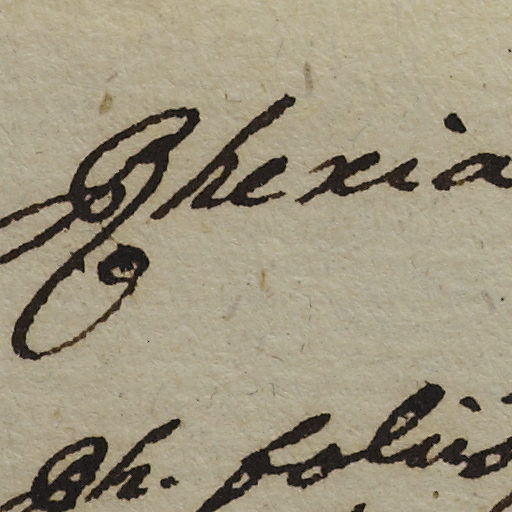 Rhexia
Rh. foliis